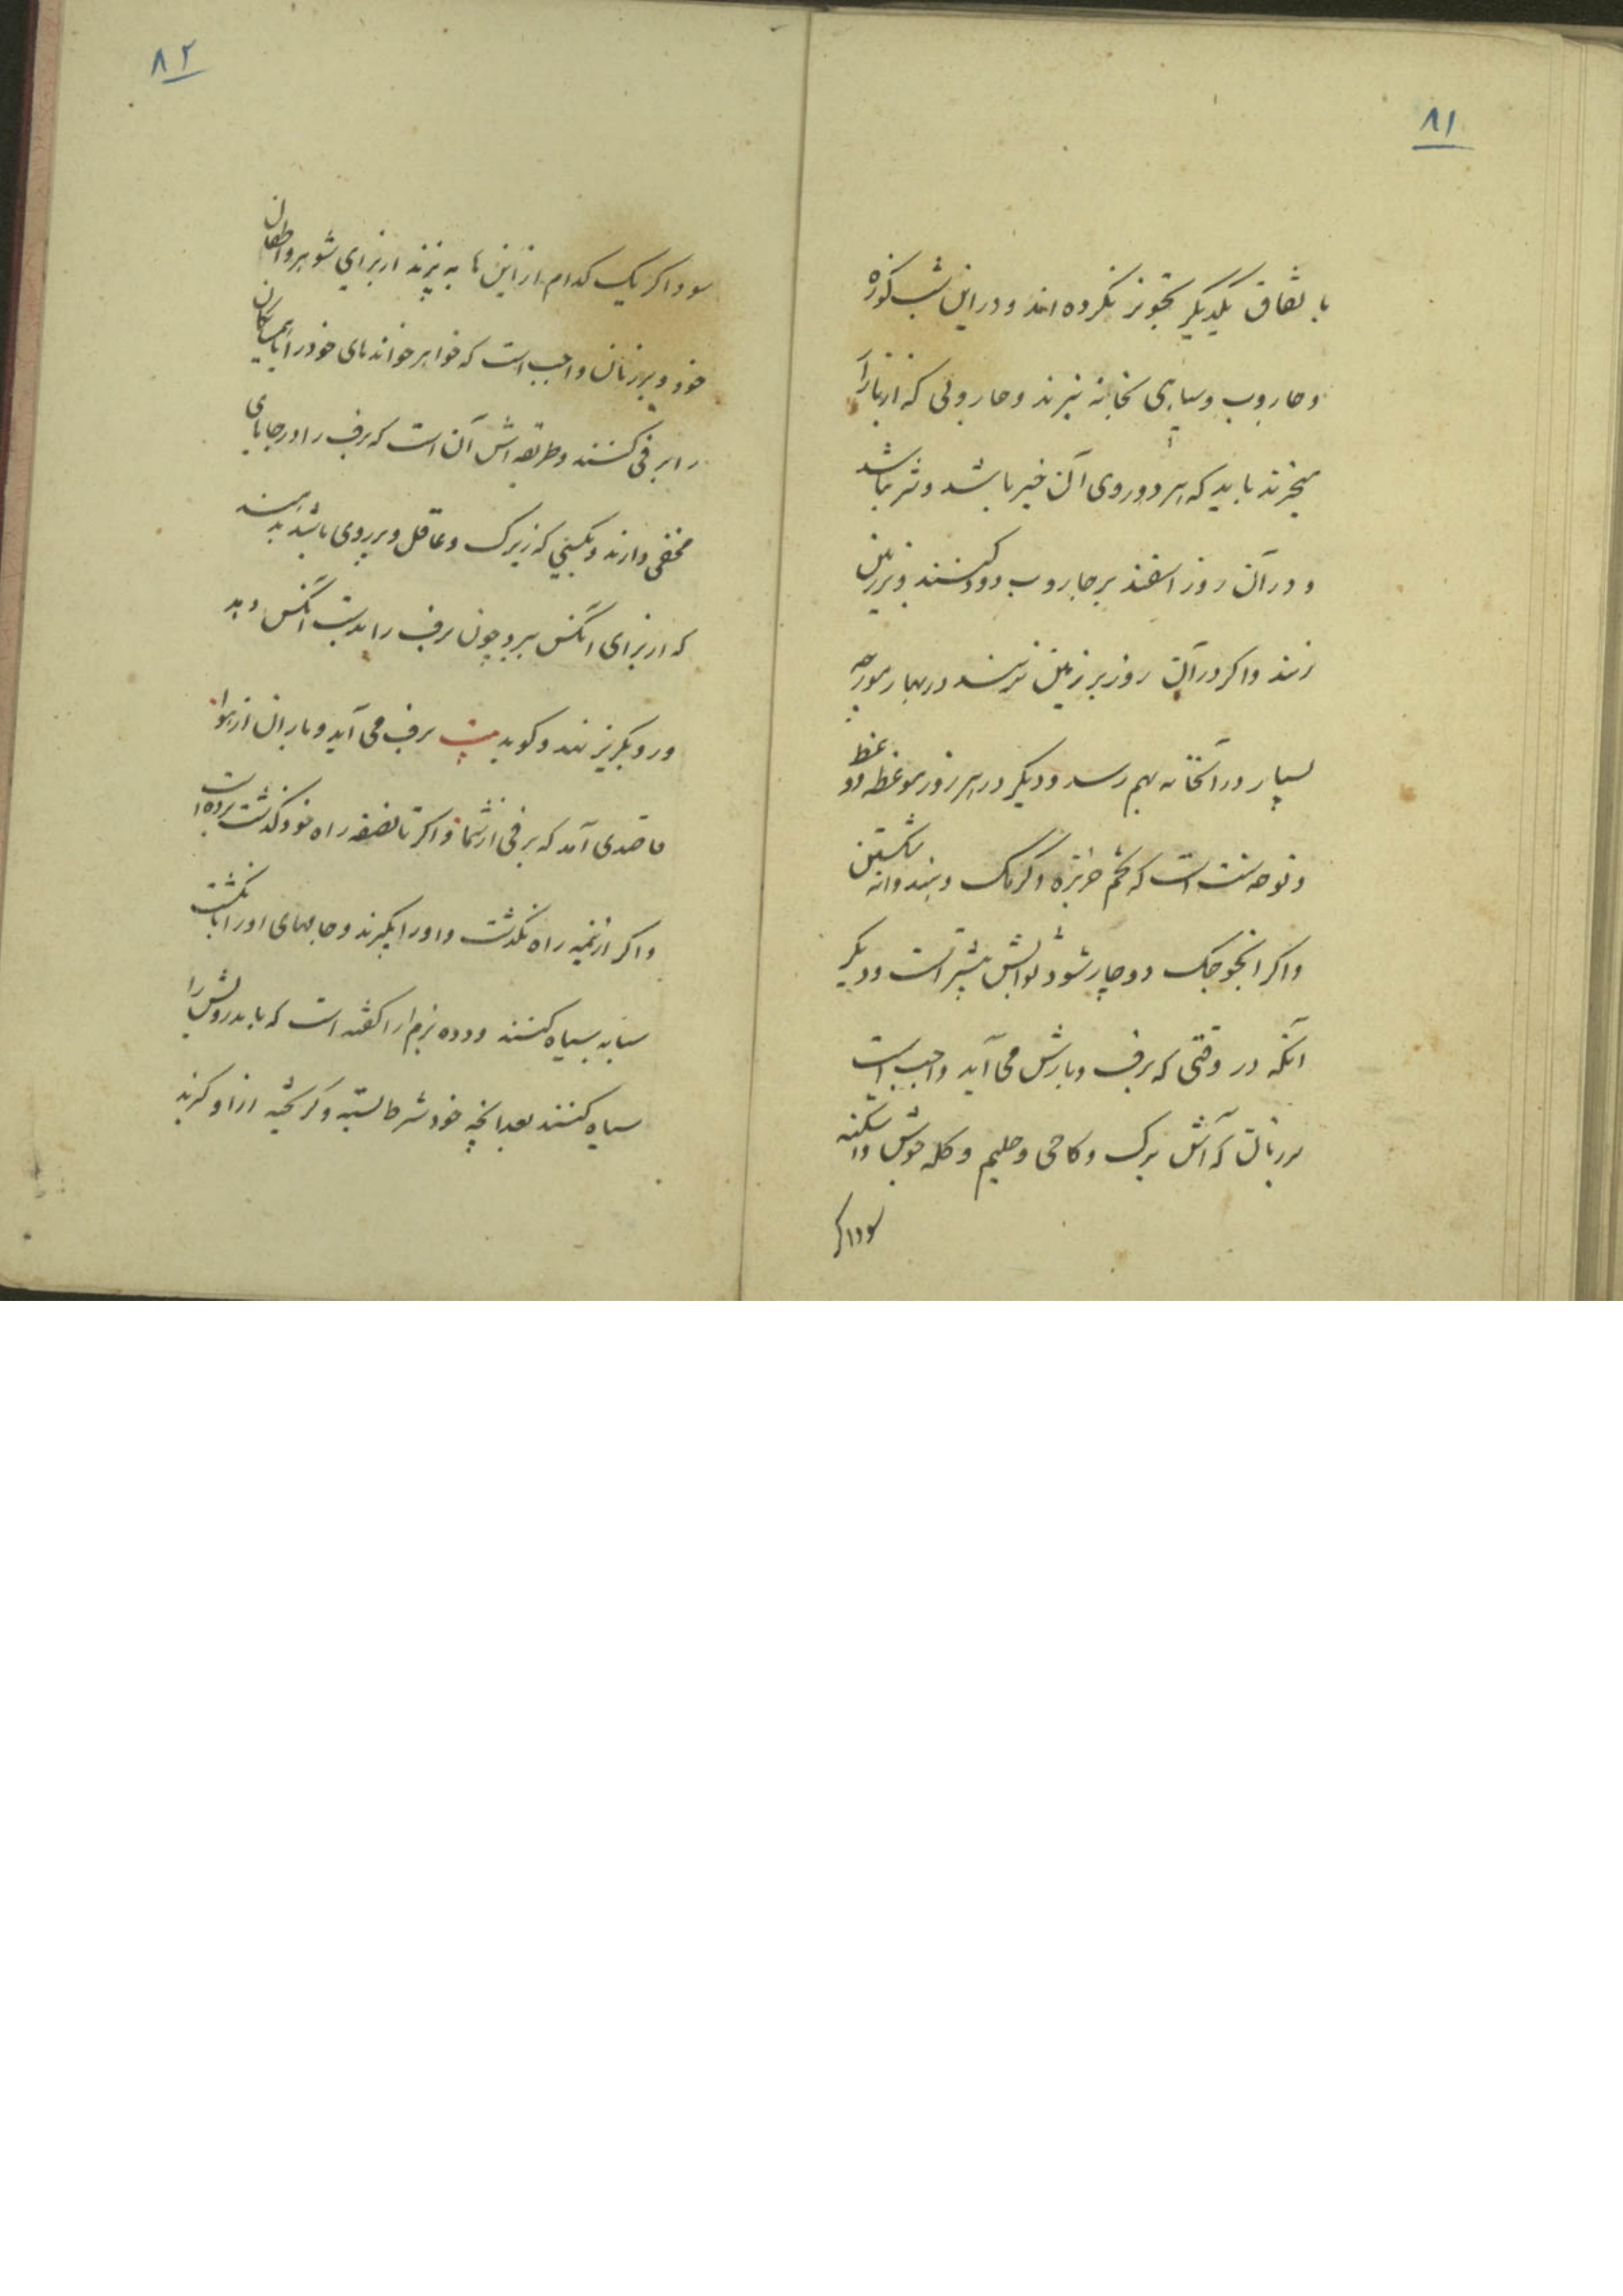 ۸۱
باتفاق یکدیگر تجویز نکرده اند و در این شب کوزه
و جاروب و سیاهی بخانه نبرند و جاروبی که از بازار
میخرند باید که هر دو روی آن خیر باشد و شر نباشد
و در آن روز اسفند بر جاروب دود کنند و بر زمین
زنند و اگر در آن روز بر زمین نزنند در بهار مورچه
بسیار در آنخانه بهم رسد و دیگر در هر روز موعظه و وعظ
و نوحه سنت است که تخم خربزه و گرمک و هندوانه شکستن
و اگر انجوجک دوچار شود ثوابش بیشتر است و دیگر
آنکه در وقتی که برف و بارش می آید واجب است
بر زنان که آش برگ و کاچی و حلیم و کله جوش و اشکنه
سودا گر
۸۲
سودا گر یک کدام از این ها به پزند از برای شوهر و اطفال
خود و بر زنان واجب است که خواهر خوانده های خود را
را برفی کنند و طریقه اش آن است که برف را در جاهای
مخفی دارند و بکسی که زیرک و عاقل و پر روی باشد بدهند
که از برای آنکس ببرد چون برف را بدست آنکس دهد
و رو بگریز نهد و گوید بیت برف می آید و باران از هوا
قاصدی آمد که برفی از شما و اگر تا نصفه راه خود گذشت برده است
و اگر از نیمه راه نگذشت و او را بگیرند و جامهای او را با انگشت
سبابه سیاه کنند و دده بزم آرا گفته است که باید رویش را
سیاه کنند بعد آنچه خود شرط بسته و گریخته از او گیرند